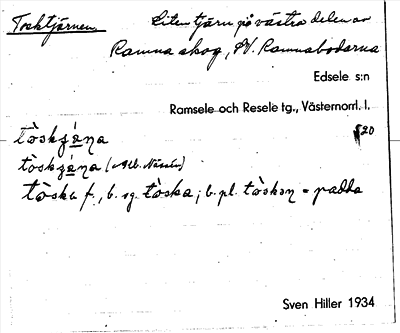 Tosktjärnen
Liten tjärn på västra delen av
Ramna skog, NV. Ramnabodarna
Edsele s:n
Ramsele och Resele tg., Västernorrl. l.
tò̀skjä̀ṇa
tò̀skjä̀ṇa
tòska f., b. sg. tòska; b. pl. tòskan = padda
Sven Hiller 1934